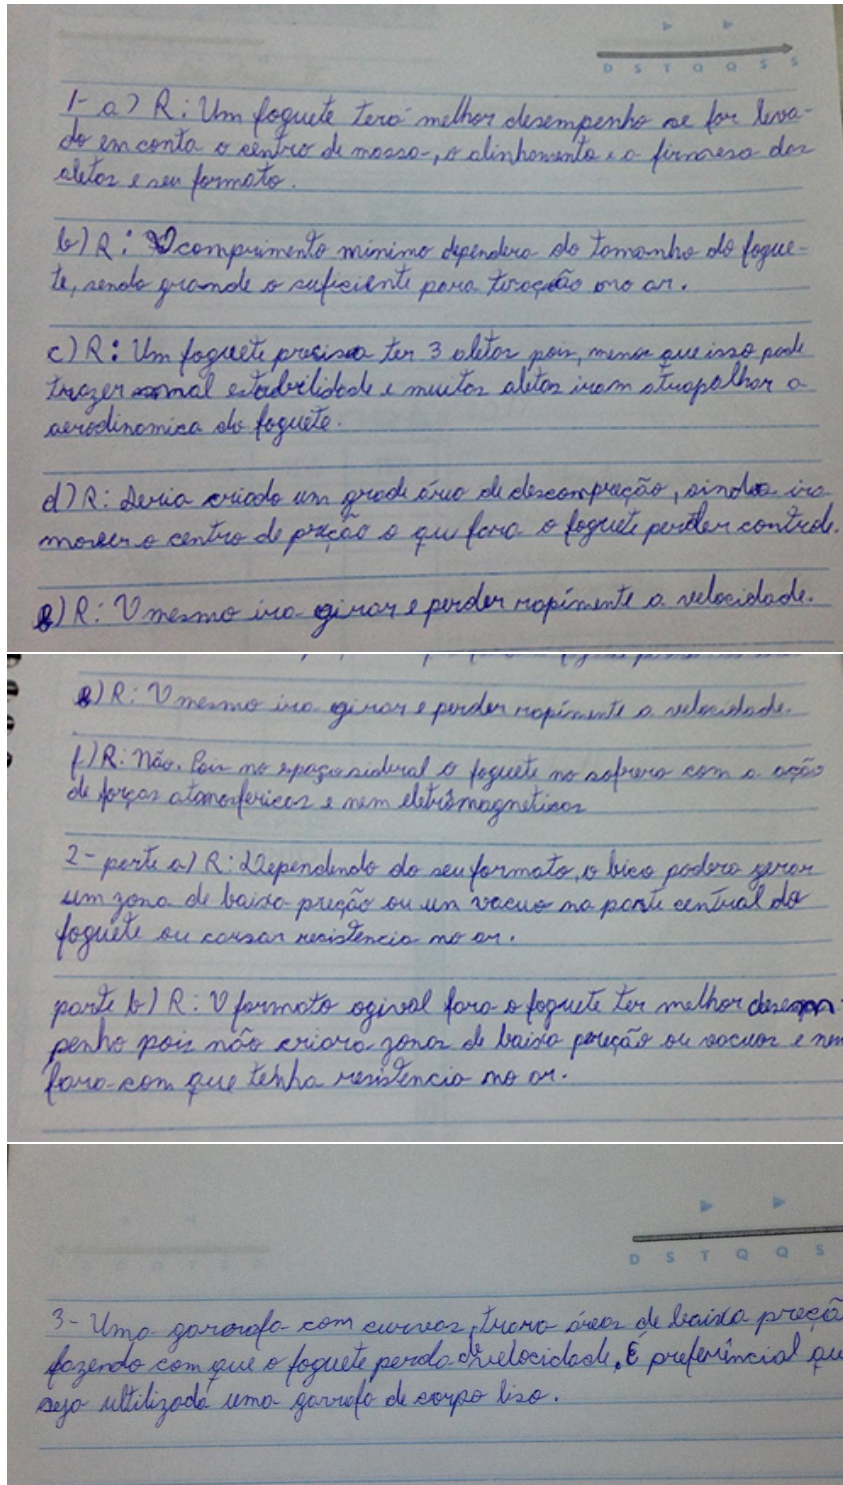 D S T Q Q S S
1- a) R: Um foguete terá melhor desempenho se for leva-
do em conta o centro de massa, o alinhamento e a firmesa das
aletas e seu formato.
b) R: O comprimento minimo dependera do tamanho do fogue-
te, sendo grande o suficiente para teração no ar.
c) R: Um foguete precisa ter 3 aletas pois, menos que isso pode
trazer mal estabilidade e muitas aletas iram atrapalhar a
aerodinamica do foguete.
d) R: Seria criado um grade área de descompreção, ainda ira
mover o centro de preção o que fara o foguete perder controle.
e) R: O mesmo ira girar e perder rapimente a velocidade.
e) R: O mesmo ira girar e perder rapimente a velocidade.
f) R: Não. Pois no espaço sideral o foguete no sofrera com a ação
de forças atomosfericas e nem eletrômagneticas
2- parte a) R: Dependendo do seu formato, o bico podera gerar
um zona de baixa preção ou un vacuo na parte central do
foguete ou carsar resistencia no ar.
parte b) R: O formato ogival fara o foguete ter melhor desem
penho pois não criara zonas de baixa preção ou vacuos e nem
fara com que tenha resistencia no ar.
D S T Q Q S
3- Uma garrafa com curvas, trara áreas de baixa preçã
fazendo com que o foguete perda de velocidade. É preferêncial qu
seja ultilizada uma garrafa de corpo liso.